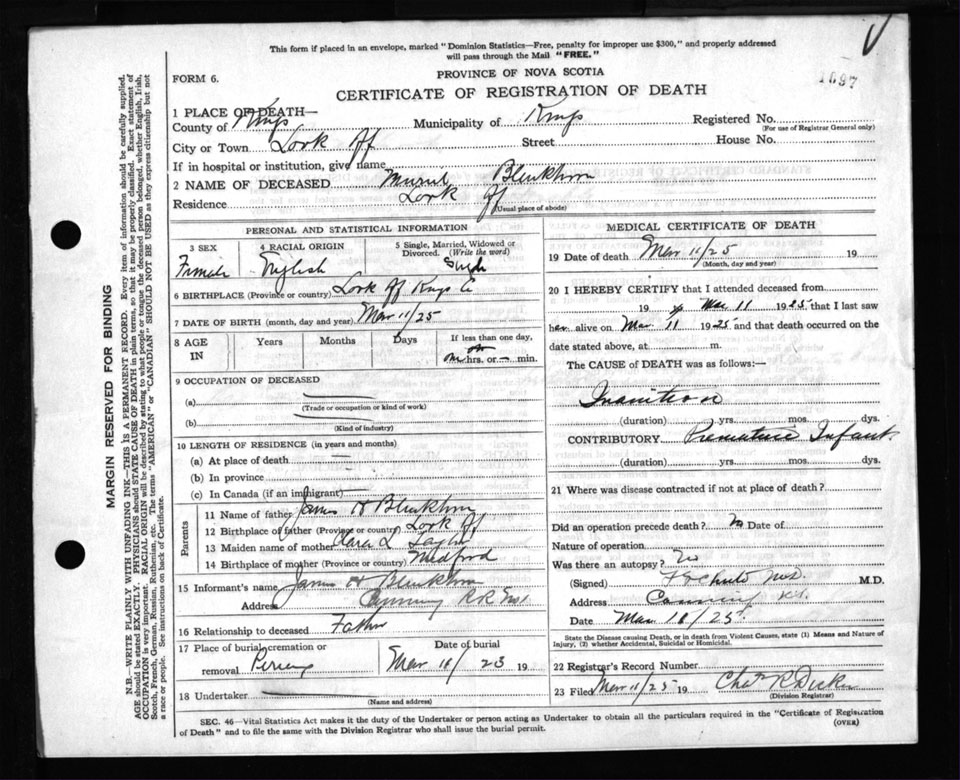 This form if placed in an envelope, marked "Dominion Statistics—Free, penalty for improper use $300," and properly addressed
will pass through the Mail "FREE."
FORM 6.
PROVINCE OF NOVA SCOTIA
1697
CERTIFICATE OF REGISTRATION OF DEATH
1 PLACE OF DEATH—
County of Kings Municipality of Kings Registered No.
(For use of Registrar General only)
City or Town Look Off Street House No.
If in hospital or institution, give name
2 NAME OF DECEASED Muriel Blenkhorn
Residence Look Off
(Usual place of abode)
PERSONAL AND STATISTICAL INFORMATION
3 SEX 4 RACIAL ORIGIN 5 Single, Married, Widowed or Divorced. (Write the word)
Female English Single
6 BIRTHPLACE (Province or country) Look Off Kings Co
7 DATE OF BIRTH (month, day and year) Mar 11/25
8 AGE IN Years Months Days If less than one day,
hrs. or — min.
9 OCCUPATION OF DECEASED
(a)
(Trade or occupation or kind of work)
(b)
(Kind of industry)
10 LENGTH OF RESIDENCE (in years and months)
(a) At place of death
(b) In province
(c) In Canada (if an immigrant)
Parents
11 Name of father James H Blenkhorn
12 Birthplace of father (Province or country) Look Off
13 Maiden name of mother Clara L Taylor
14 Birthplace of mother (Province or country) Medford
15 Informant's name James H Blenkhorn
Address Canning RR No1
16 Relationship to deceased Father
17 Place of burial, cremation or removal Date of burial
Mar 19
18 Undertaker
(Name and address)
MEDICAL CERTIFICATE OF DEATH
19 Date of death Mar 11/25 19
(Month, day and year)
20 I HEREBY CERTIFY that I attended deceased from
19 to Mar 11 1925 that I last saw
her alive on Mar 11 1925 and that death occurred on
date stated above, at m.
The CAUSE OF DEATH was as follows:—
Inanition
(duration) yrs. mos. dys.
CONTRIBUTORY Premature Infant
(duration) yrs. mos. dys.
21 Where was disease contracted if not at place of death?
Did an operation precede death? No Date of
Nature of operation
Was there an autopsy? No
(Signed) M.D.
Address Canning
Date Mar /25
State the Disease causing Death, or in death from Violent Causes, state (1) Means and Nature of
Injury, (2) whether Accidental, Suicidal or Homicidal.
22 Registrar's Record Number
23 Filed Mar 11/25 19 Chas R Dickie
(Division Registrar)
SEC. 46—Vital Statistics Act makes it the duty of the Undertaker or person acting as Undertaker to obtain all the particulars required in the "Certificate of Registration
of Death" and to file the same with the Division Registrar who shall issue the burial permit.
(OVER)
MARGIN RESERVED FOR BINDING
N.B.—WRITE PLAINLY WITH UNFADING INK—THIS IS A PERMANENT RECORD. Every item of information should be carefully supplied.
AGE should be stated EXACTLY. PHYSICIANS should STATE CAUSE OF DEATH in plain terms, so that it may be properly classified. Exact statement of
OCCUPATION is very important. RACIAL ORIGIN will be described by stating to what people or tongue the deceased person belonged, whether English, Irish,
Scotch, French, German, Russian, Ruthenian, etc. The terms "AMERICAN" or "CANADIAN" SHOULD NOT BE USED as they express citizenship but not
a race or people. See instructions on back of Certificate.